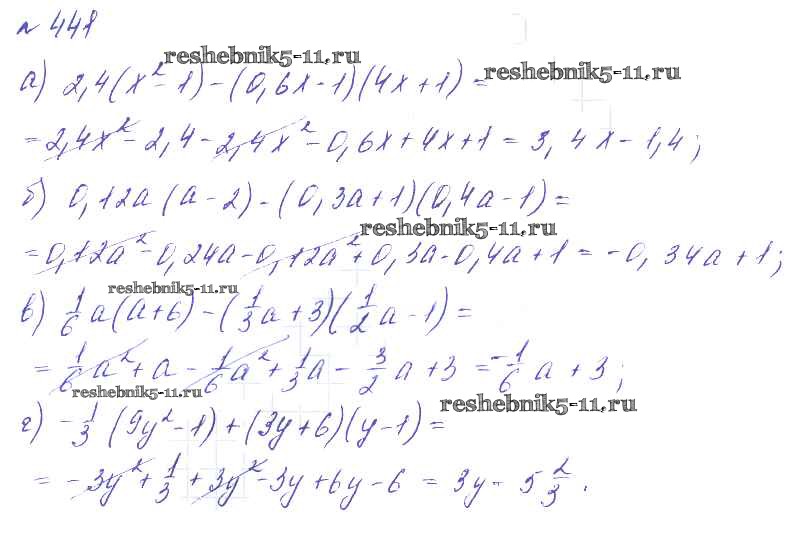 № 448
reshebnik5-11.ru
а) 2,4(x² - 1) - (0,6x - 1)(4x + 1) =
reshebnik5-11.ru
= 2,4x² - 2,4 - 2,4x² - 0,6x + 4x + 1 = 3,4x - 1,4;
б) 0,12a (a - 2) - (0,3a + 1)(0,4a - 1) =
reshebnik5-11.ru
= 0,12a² - 0,24a - 0,12a² + 0,3a - 0,4a + 1 = -0,34a + 1;
reshebnik5-11.ru
в) 1/6 a(a + 6) - (1/3 a + 3)(1/2 a - 1) =
= 1/6 a² + a - 1/6 a² + 1/3 a - 3/2 a + 3 = -1/6 a + 3;
reshebnik5-11.ru
reshebnik5-11.ru
г) -1/3 (9y² - 1) + (3y + 6)(y - 1) =
= -3y² + 1/3 + 3y² - 3y + 6y - 6 = 3y - 5 2/3.